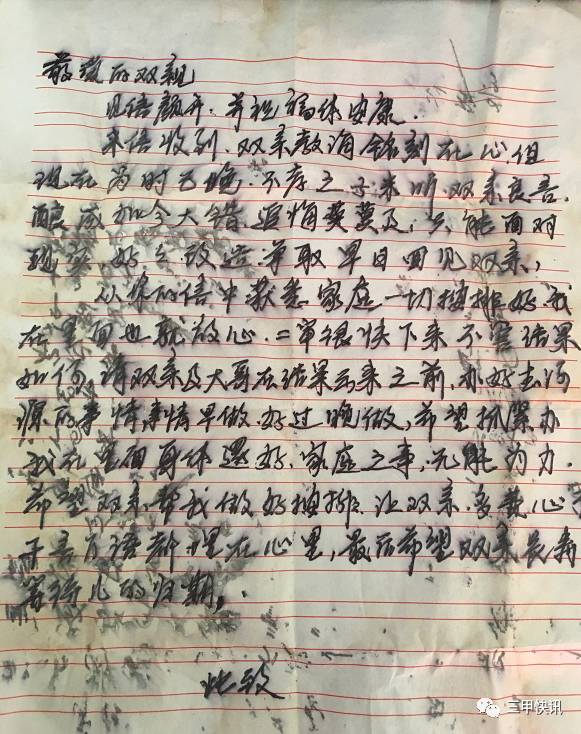 敬敬的双亲
见信颜开.并祝福体安康.
来信收到.双亲教诲铭刻在心.但
现在为时已晚.不孝之子未听双亲良言.
酿成如今大错.追悔莫及;只能面对
现实好之改造争取早日回见双亲,
从你的信中获悉家庭一切按排好我
在里面也就放心.二审很快下来不管结果
如何请双亲及大哥在结果出来之前,办好去河
源的事情,事情早做好过晚做,希望抓紧办
我在里面身体还好.家庭之事,无能为力.
希望双亲帮我做好按排.让双亲.多费心
千言万语都埋在心里,最后希望双亲
等待儿的归期,
此致
三甲快讯